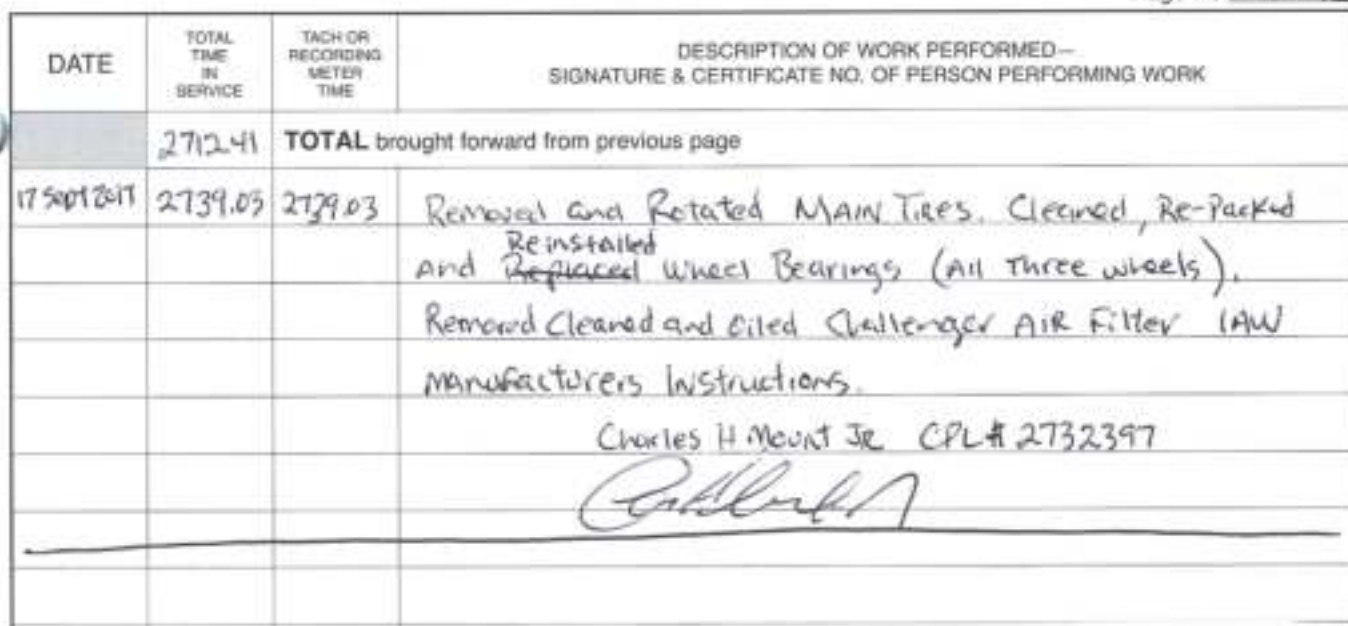 DATE
TOTAL TIME IN SERVICE
TACH OR RECORDING METER TIME
DESCRIPTION OF WORK PERFORMED—
SIGNATURE & CERTIFICATE NO. OF PERSON PERFORMING WORK
2712.41 TOTAL brought forward from previous page
17 Sept 2017 2739.03 2739.03 Removed and Rotated MAIN TIRES. Cleaned, Re-Packed
Reinstalled
And Replaced Wheel Bearings (All Three wheels).
Removed Cleaned and Oiled Challenger AIR Filter IAW
Manufacturers Instructions.
Charles H Mount JR CPL# 2732397